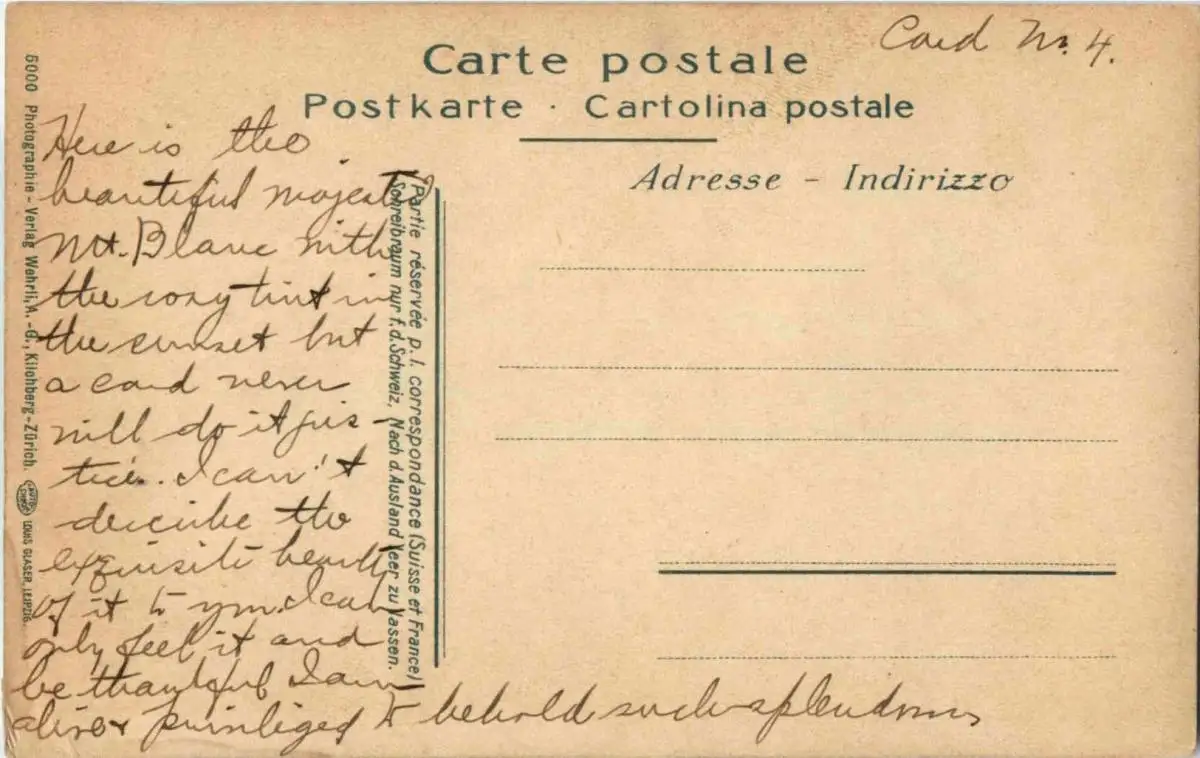 Card No. 4.
Carte postale
Postkarte · Cartolina postale
Adresse - Indirizzo
Here is the
beautiful majestic
Mt. Blanc with
the rosy tint in
the sunset but
a card never
will do it jus-
tice. I can't
describe the
exquisite beauty
of it to you. I can
only feel it and
be thankful I am
alive & priviliged to behold such splendours
Partie réservée p. l. correspondance (Suisse et France)
Schreibraum nur f. d. Schweiz, Nach d. Ausland leer zu lassen.
5000 Photographie-Verlag Wehrli, A.-G., Kilchberg-Zürich.
LOUIS GLASER, LEIPZIG.